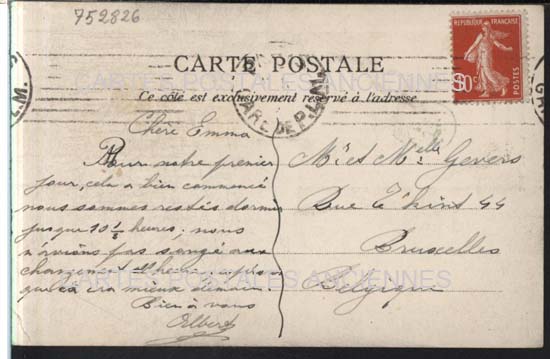 752826
CARTE POSTALE
REPUBLIQUE FRANÇAISE
10c
POSTES
CARTES POSTALES ANCIENNES
Ce côté est exclusivement réservé à l'adresse
GARE DE P.L.M.
L.M.
GA
Chère Emma
Pour notre premier
jour, cela a bien commencé
nous sommes restés dormir
jusque 10 1/2 heures; nous
n'avions pas songé au
changement d'heure
que ça ira mieux demain.
Bien à vous
Albert
Mr et Melle Gevers
Rue 44
Bruxelles
Belgique
CARTES POSTALES ANCIENNES